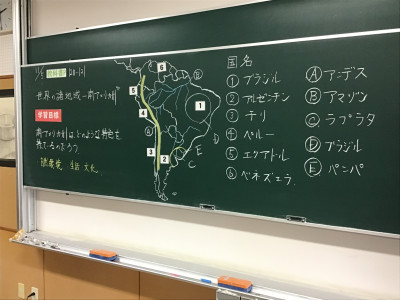 教科書 P120-121
世界の諸地域－南アメリカ州
学習目標
南アメリカ州はどのような特色を
持っているのだろう
環境 生活 文化
6
5
1
4
3
2
C
D
E
国名
① ブラジル
② アルゼンチン
③ チリ
④ ペルー
⑤ エクアドル
⑥ ベネズエラ
Ⓐ アンデス
Ⓑ アマゾン
Ⓒ ラプラタ
Ⓓ ブラジル
Ⓔ パンパ